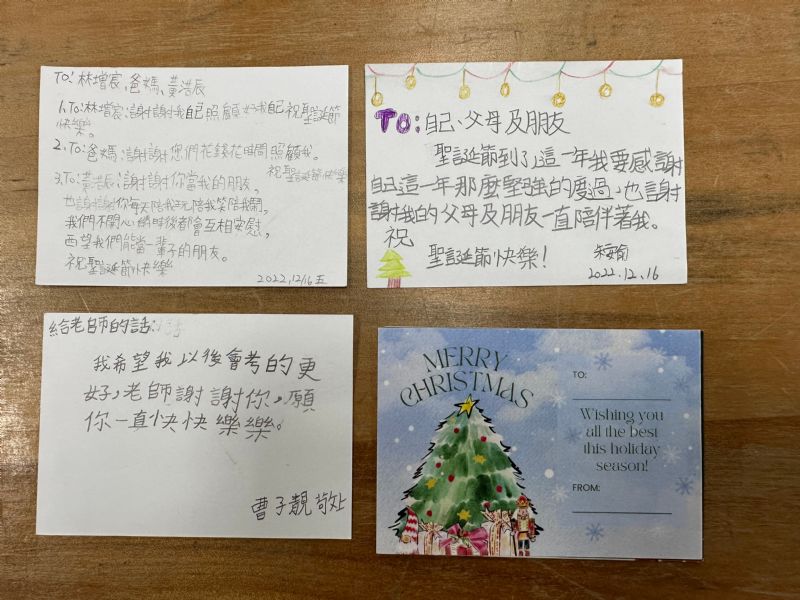 To:林增宸、爸媽、黃浩辰
1.To:林增宸:謝謝我自己照顧好我自己祝聖誕節
快樂。
2.To:爸媽:謝謝您們花錢花時間照顧我。
祝聖誕節快樂
3.To:黃浩辰:謝謝你當我的朋友,
也謝謝你每天陪我玩陪我笑陪我鬧,
我們不開心的時後都會互相安慰,
西望我們能當一輩子的朋友。
祝聖誕節快樂
2022,12/16 五
TO:自己、父母及朋友
聖誕節到了,這一年我要感謝
自己這一年那麼堅強的度過,也謝
謝我的父母及朋友一直陪伴著我。
祝
聖誕節快樂!
2022.12.16
給老師的話:
我希望我以後會考的更
好,老師謝謝你,願
你一直快快樂樂。
曹子靚 敬上
MERRY
CHRISTMAS
TO:
Wishing you
all the best
this holiday
season!
FROM: